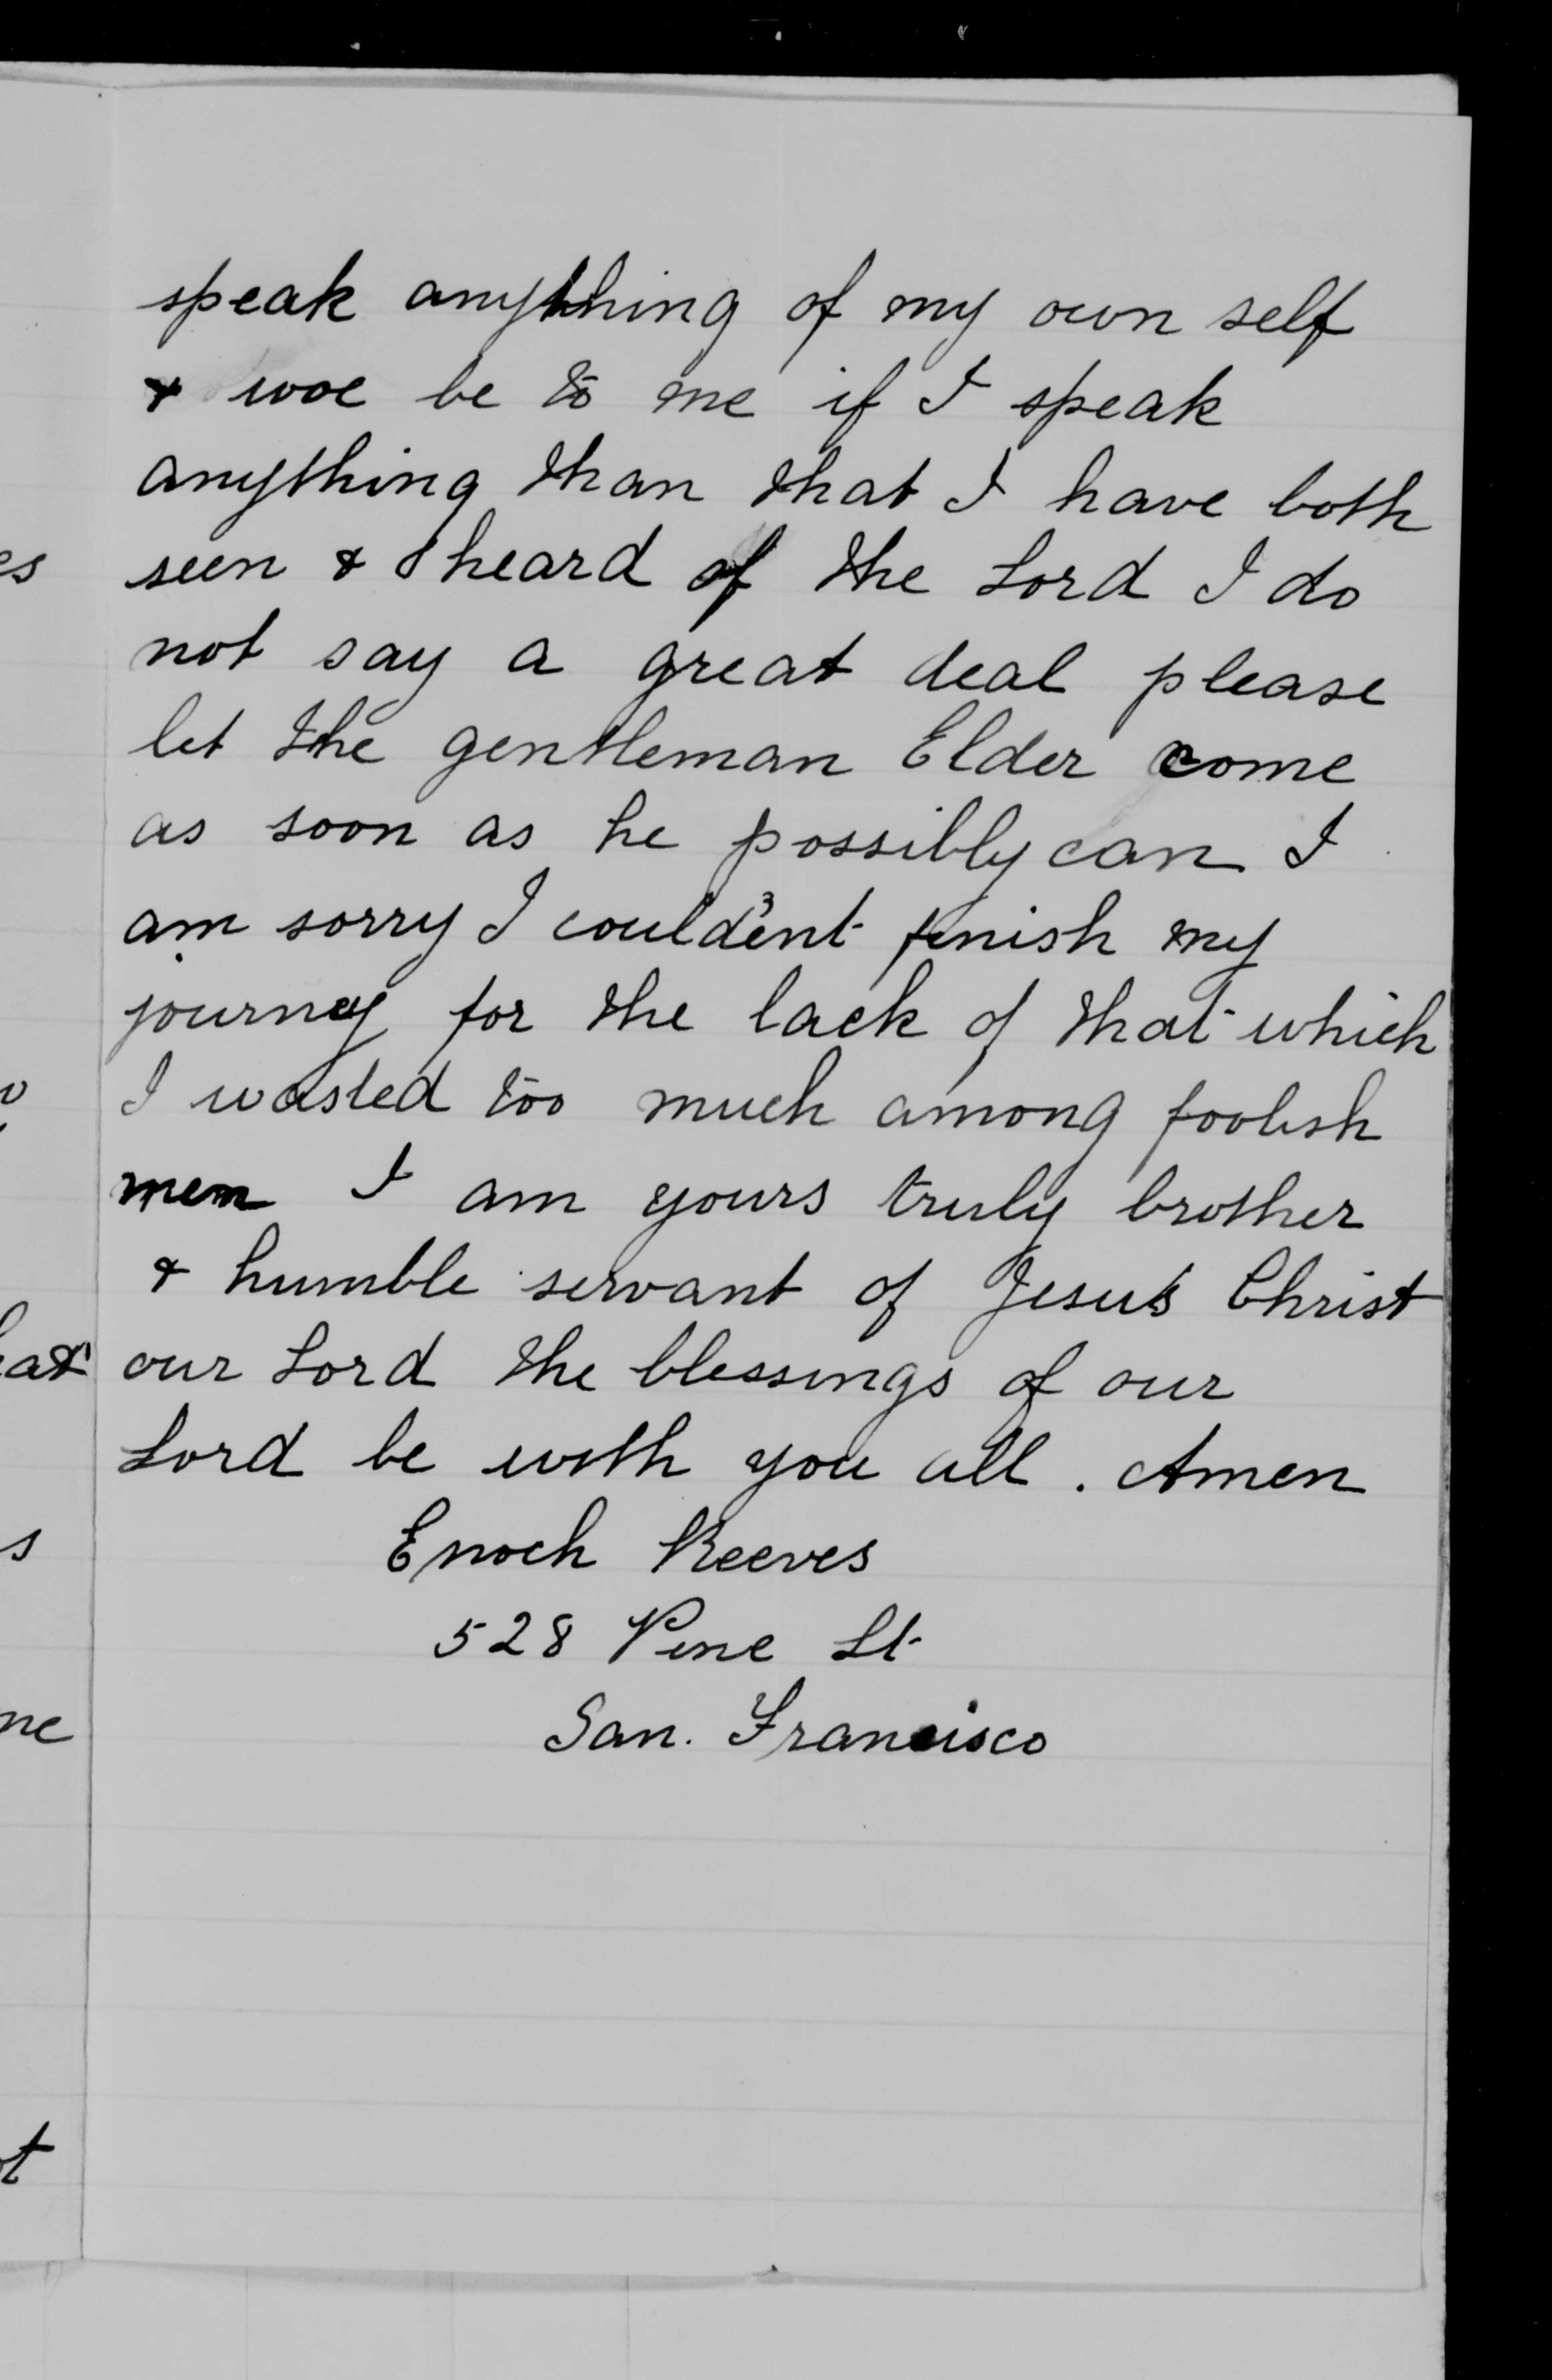 speak anything of my own self
& woe be to me if I speak
anything than that I have both
seen & heard of the Lord I do
not say a great deal please
let the gentleman Elder come
as soon as he possibly can I
am sorry I could'ent finish my
journey for the lack of that which
I wasted too much among foolish
men I am yours truly brother
& humble servant of Jesus Christ
our Lord the blessings of our
Lord be with you all. Amen
Enoch Reeves
528 Pine St
San. Francisco